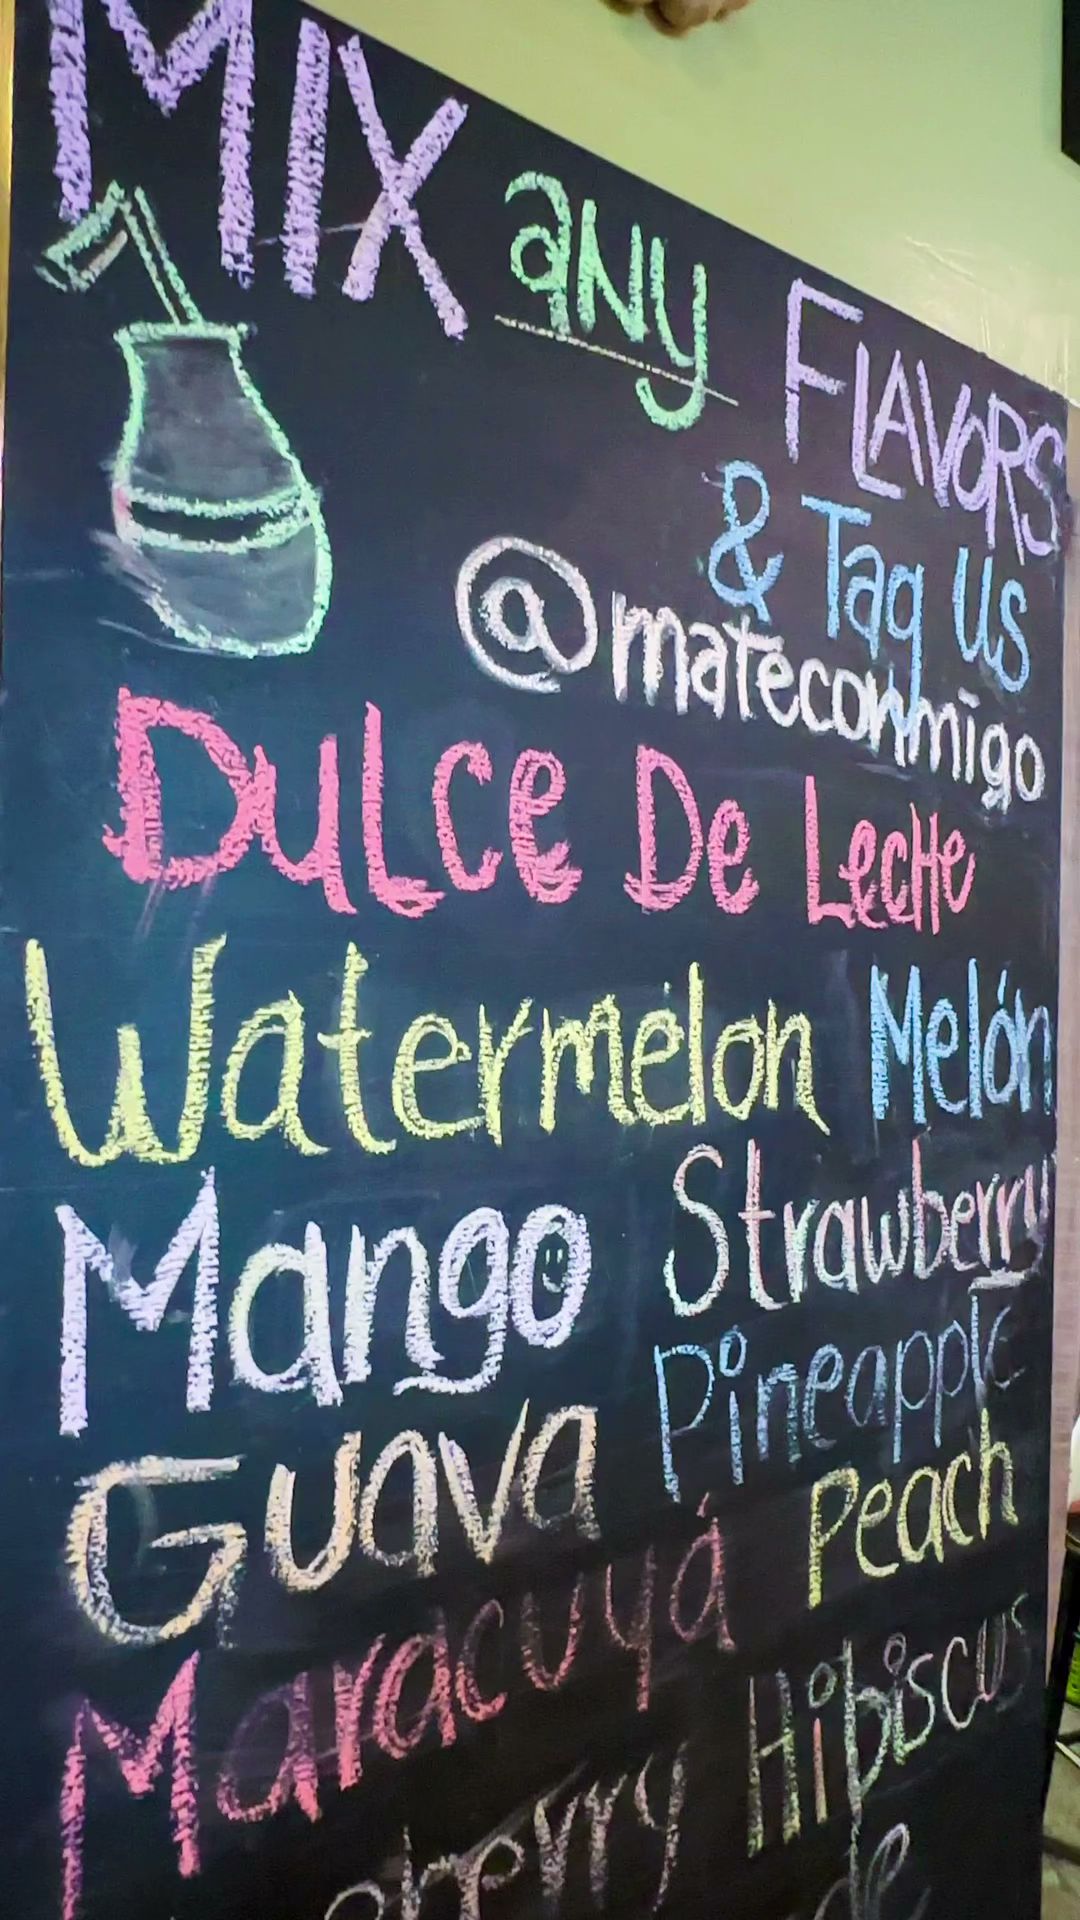 MIX any FLAVORS
& Tag Us
@mateconmigo
Dulce De Leche
Watermelon Melón
Mango Strawberry
Guava Pineapple
Maracuyá Peach
Hibiscus